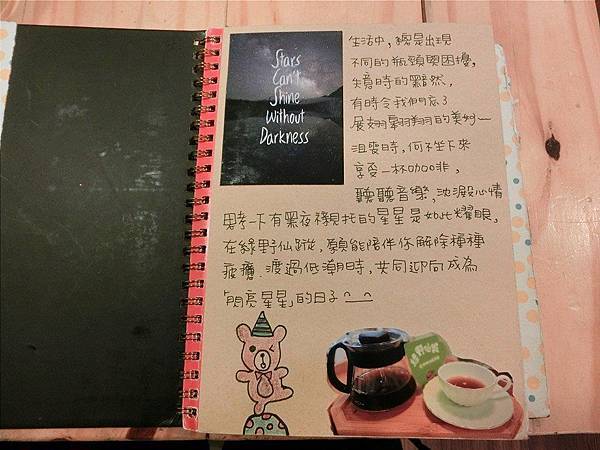 Stars
Can't
Shine
Without
Darkness
生活中，總是出現
不同的瓶頸與困擾，
失意時的黯然，
有時令我們忘了
展翅翱翔的美好—
沮喪時，何不坐下來
享受一杯咖啡，
聽聽音樂，沈澱心情
思考一下有黑夜襯托的星星是如此耀眼，
在綠野仙蹤，願能陪伴你解除種種
疲憊、渡過低潮時，共同迎向成為
「閃亮星星」的日子^__^
綠野仙蹤